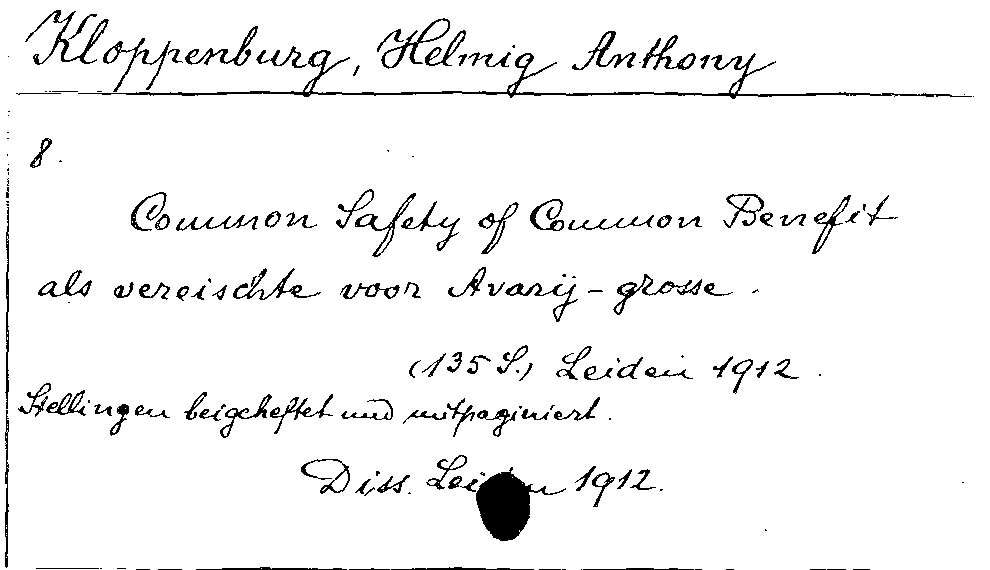 Kloppenburg, Helmig Anthony
8.
Common Safety of Common Benefit
als vereischte voor Avarij-grosse.
(135 S.) Leiden 1912.
Stellingen beigeheftet und mitpaginiert.
Diss. Leiden 1912.